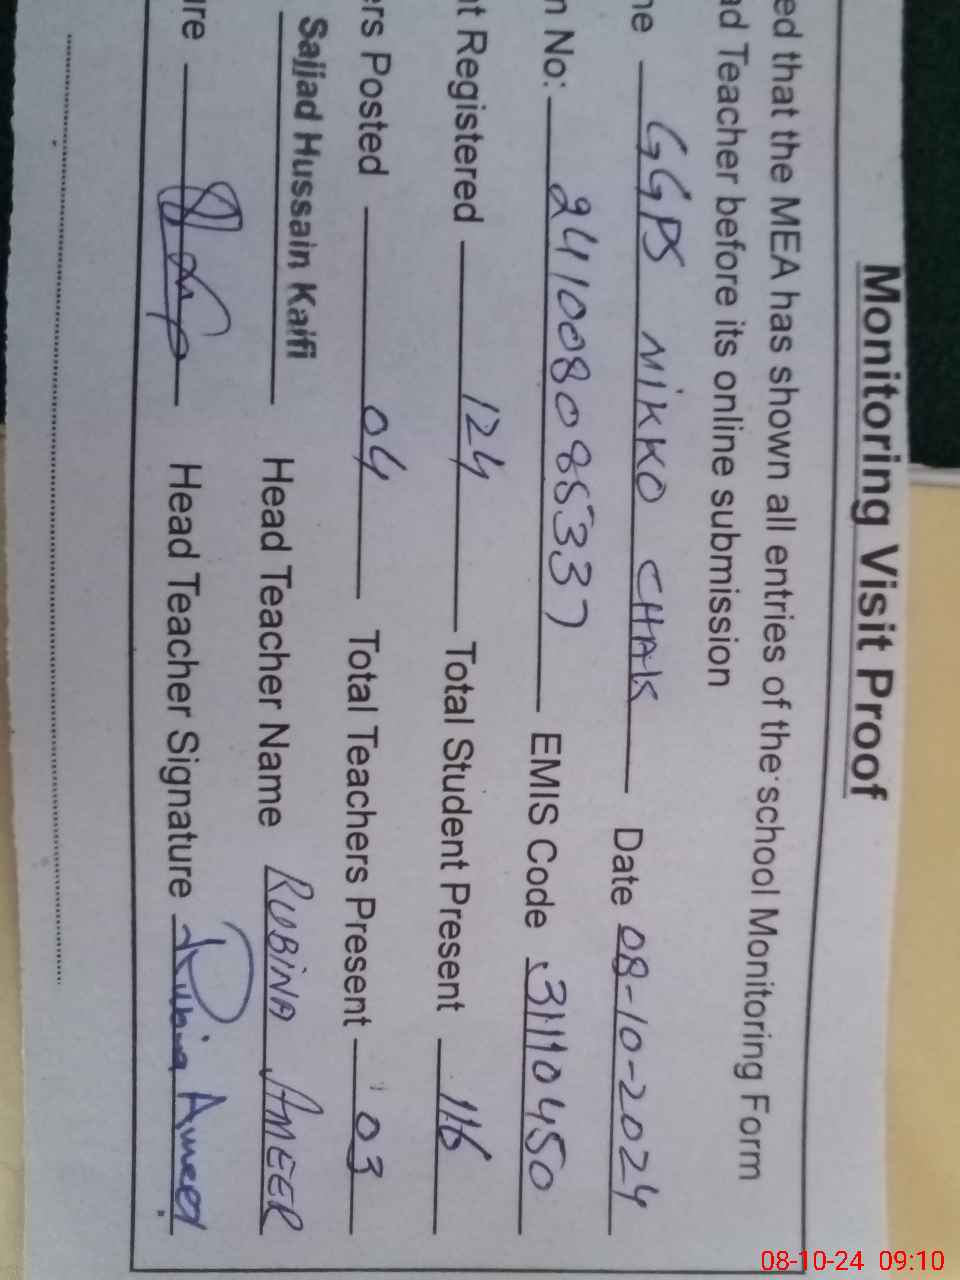 Monitoring Visit Proof
ed that the MEA has shown all entries of the school Monitoring Form
ad Teacher before its online submission
me GGPS MIKKO CHAK Date 08-10-2024
n No: 2410080808533 7 EMIS Code 31110450
nt Registered 124 Total Student Present 116
ers Posted 04 Total Teachers Present 03
Sajjad Hussain Kaifi Head Teacher Name RUBINA AMEER
ure Head Teacher Signature Rubina Ameer
08-10-24 09:10